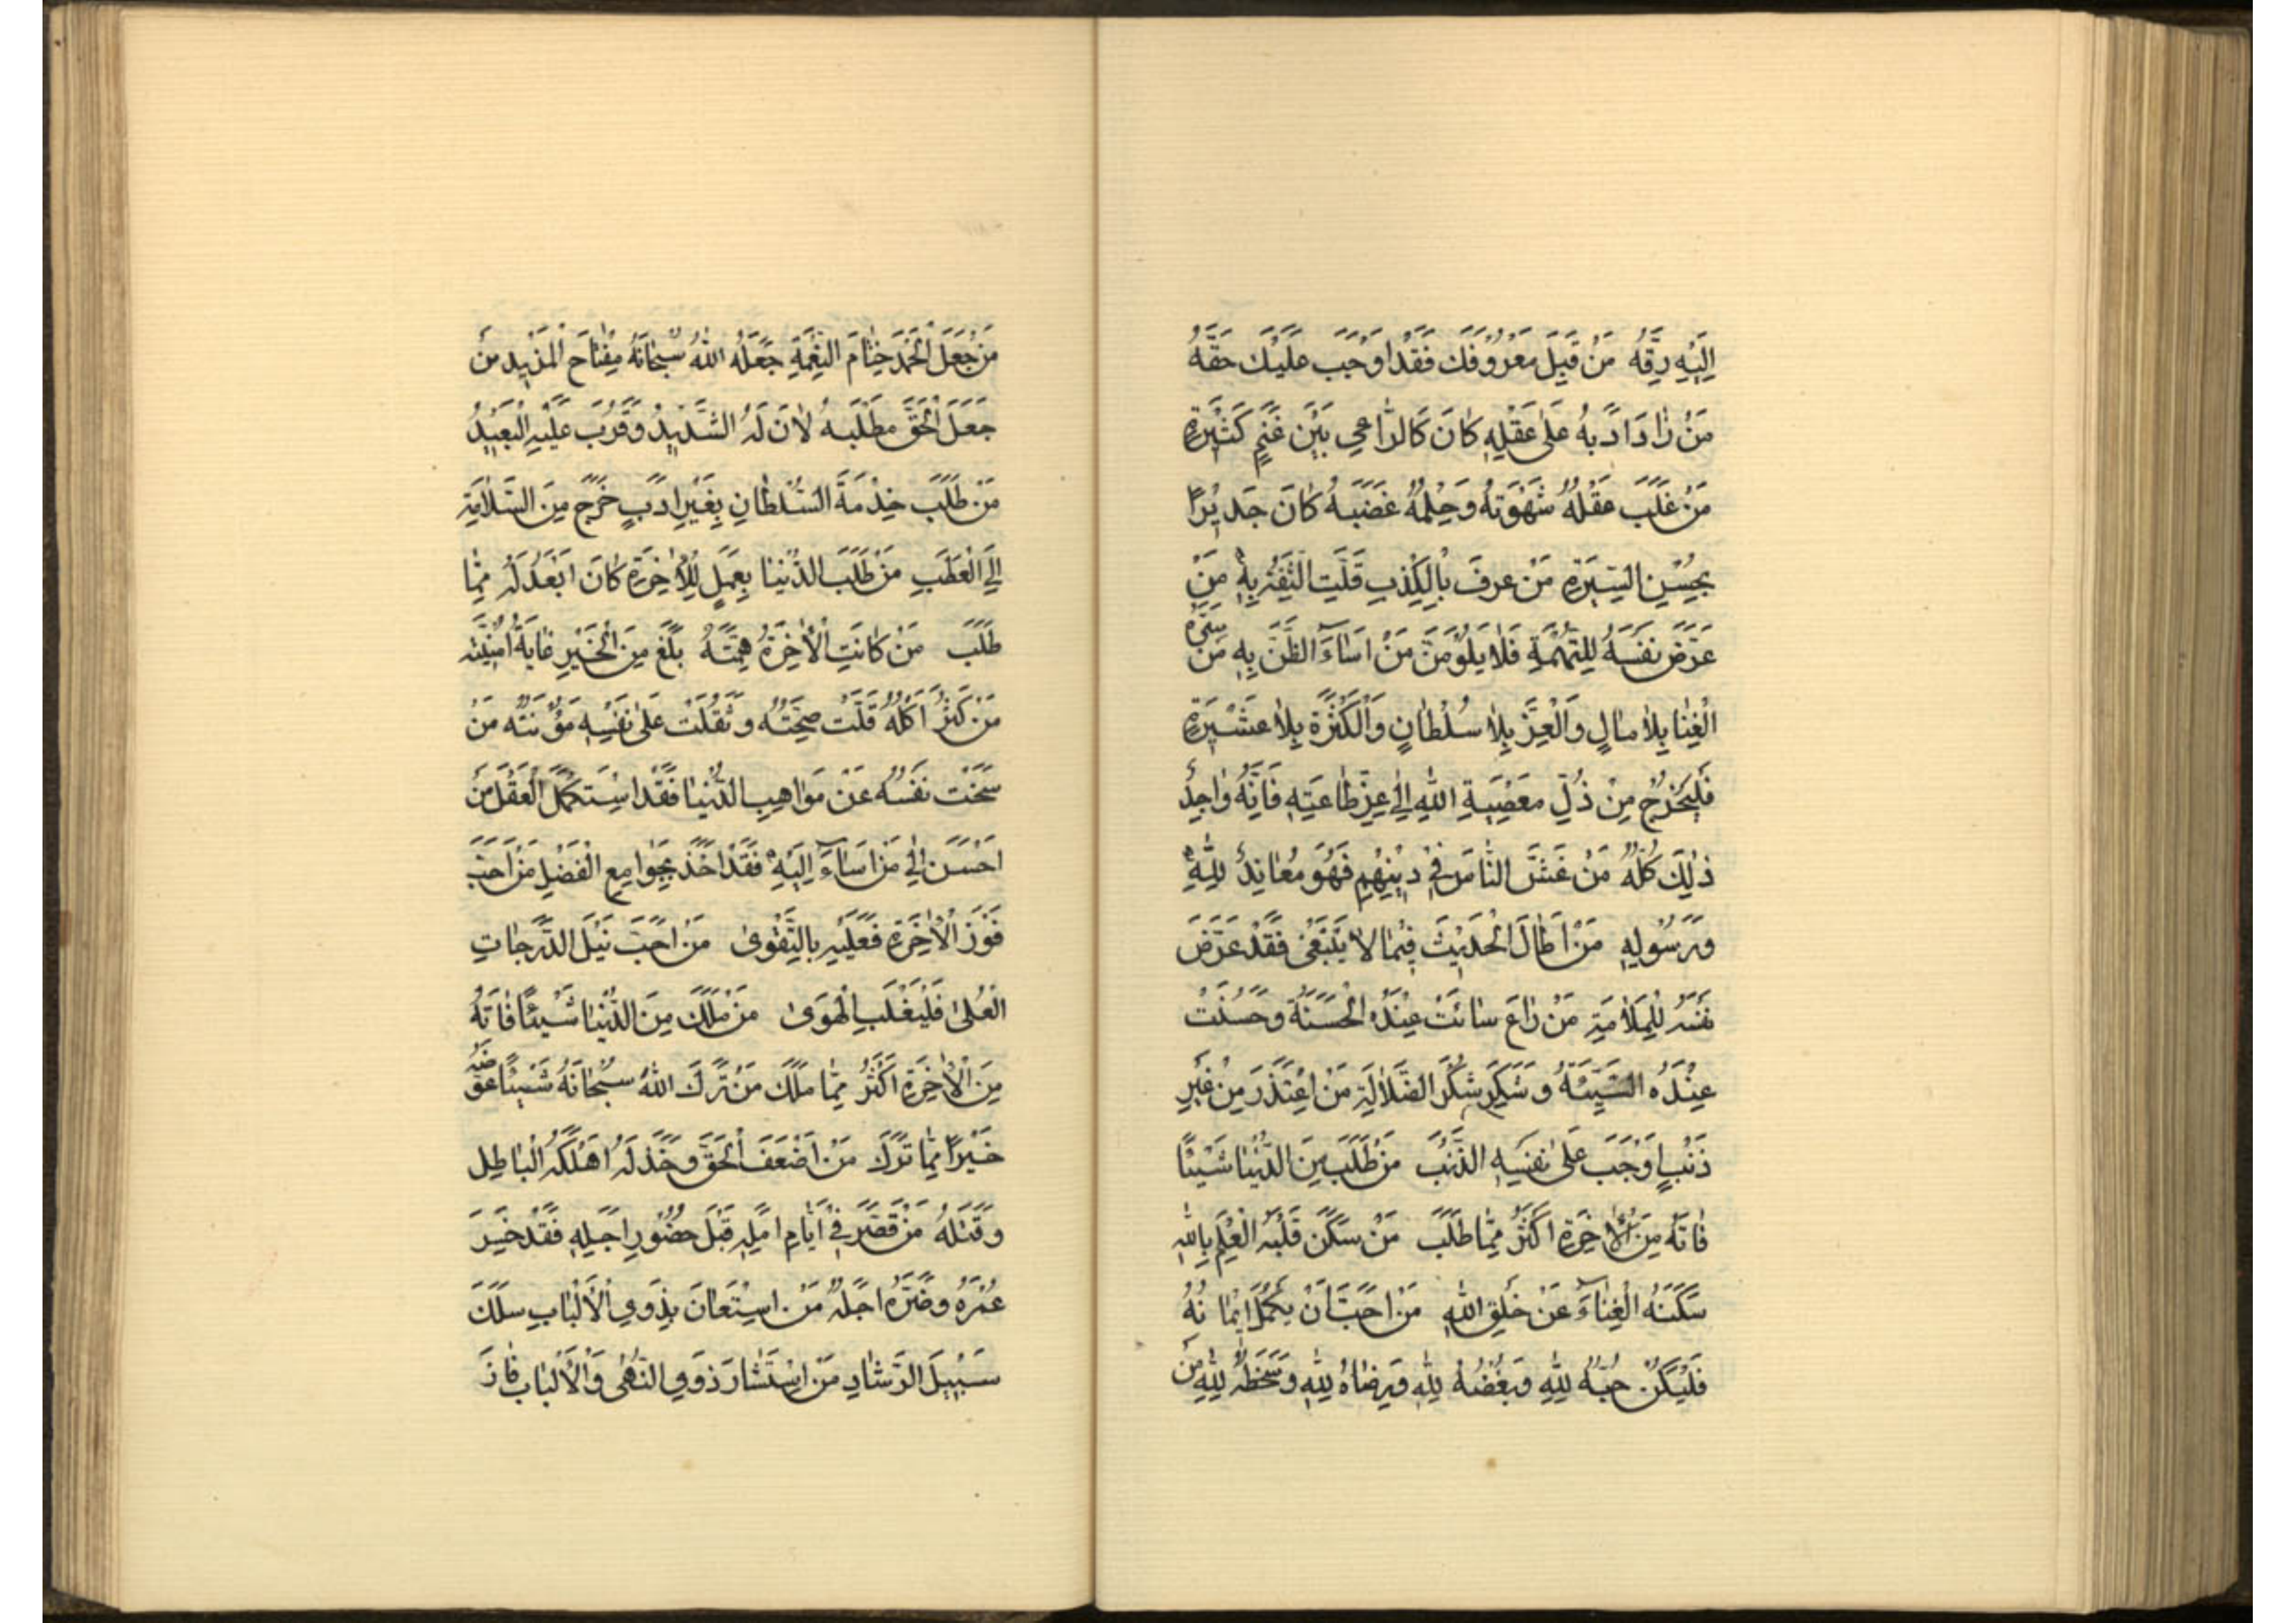 اِلَيْهِ رِقَّهُ مَنْ قَبِلَ مَعْرُوفَكَ فَقَدْ اَوْجَبَ عَلَيْكَ حَقَّهُ
مَنْ زٰادَ اَدَبُهُ عَلٰى عَقْلِهِ كٰانَ كَالرّٰاعِي بَيْنَ غَنَمٍ كَثِيرَةٍ
مَنْ غَلَبَ عَقْلُهُ شَهْوَتَهُ وَحِلْمُهُ غَضَبَهُ كٰانَ جَدِيْرًا
بِحُسْنِ السِّيرَةِ مَنْ عُرِفَ بِالْكِذْبِ قَلَّتِ الثِّقَةُ بِهِ مَنْ
عَرَّضَ نَفْسَهُ لِلتُّهْمَةِ فَلٰا يَلُوْمَنَّ مَنْ اَسٰاءَ الظَّنَّ بِهِ مَنْ سَرَّهُ
الْغِنٰا بِلٰا مٰالٍ وَالْعِزُّ بِلٰا سُلْطٰانٍ وَالْكَثْرَةُ بِلٰا عَشِيْرَةٍ
فَلْيَخْرُجْ مِنْ ذُلِّ مَعْصِيَةِ اللهِ اِلٰى عِزِّ طٰاعَتِهِ فَاِنَّهُ وٰاجِدُ
ذٰلِكَ كُلِّهِ مَنْ غَشَّ النّٰاسَ فِيْ دِيْنِهِمْ فَهُوَ مُعٰانِدُ لِلّٰهِ
وَرَسُوْلِهِ مَنْ اَطٰالَ الْحَدِيْثَ فِيْمٰا لٰا يَنْبَغِيْ فَقَدْ عَرَّضَ
نَفْسَهُ لِلْمَلٰامَةِ مَنْ زٰاغَ سٰائَتْ عِنْدَهُ الْحَسَنَةُ وَحَسُنَتْ
عِنْدَهُ السَّيِّئَةُ وَسَكِرَ سُكْرَ الضَّلٰالَةِ مَنْ اِعْتَذَرَ مِنْ غَيْرِ
ذَنْبٍ اَوْجَبَ عَلٰى نَفْسِهِ الذَّنْبَ مَنْ طَلَبَ مِنَ الدُّنْيٰا شَيْئًا
فٰاتَهُ مِنَ الْاٰخِرَةِ اَكْثَرُ مِمّٰا طَلَبَ مَنْ سَكَنَ قَلْبَهُ الْعِلْمُ بِاللهِ
سَكَنَهُ الْغِنٰاءُ عَنْ خَلْقِ اللهِ مَنْ اَحَبَّ اَنْ يَكْمُلَ اِيْمٰانُهُ
فَلْيَكُنْ حُبُّهُ لِلّٰهِ وَبُغْضُهُ لِلّٰهِ وَرِضٰاهُ لِلّٰهِ وَسَخَطُهُ لِلّٰهِ مَنْ
مَنْ جَعَلَ الْحَمْدَ خِتٰامَ النِّعْمَةِ جَعَلَهُ اللهُ سُبْحٰانَهُ مِفْتٰاحَ الْمَزِيدِ مَنْ
جَعَلَ الْحَقَّ مَطْلَبَهُ لٰانَ لَهُ الشَّدِيْدُ وَقَرُبَ عَلَيْهِ الْبَعِيْدُ
مَنْ طَلَبَ خِدْمَةَ السُّلْطٰانِ بِغَيْرِ اَدَبٍ خَرَجَ مِنَ السَّلٰامَةِ
اِلَى الْعَطَبِ مَنْ طَلَبَ الدُّنْيٰا بِعَمَلِ الْاٰخِرَةِ كٰانَ اَبْعَدَ لَهُ مِمّٰا
طَلَبَ مَنْ كٰانَتِ الْاٰخِرَةُ هِمَّتَهُ بَلَغَ مِنَ الْخَيْرِ غٰايَةَ اُمْنِيَّتِهِ
مَنْ كَثُرَ اَكْلُهُ قَلَّتْ صِحَّتُهُ وَثَقُلَتْ عَلٰى نَفْسِهِ مَؤُنَتُهُ مَنْ
سَخَتْ نَفْسُهُ عَنْ مَوٰاهِبِ الدُّنْيٰا فَقَدْ اِسْتَكْمَلَ الْعَقْلَ مَنْ
اَحْسَنَ اِلٰى مَنْ اَسٰاءَ اِلَيْهِ فَقَدْ اَخَذَ بِجَوٰامِعِ الْفَضْلِ مَنْ اَحَبَّ
فَوْزَ الْاٰخِرَةِ فَعَلَيْهِ بِالتَّقْوىٰ مَنْ اَحَبَّ نَيْلَ الدَّرَجٰاتِ
الْعُلىٰ فَلْيَغْلِبِ الْهَوىٰ مَنْ مَلَكَ مِنَ الدُّنْيٰا شَيْئًا فٰاتَهُ
مِنَ الْاٰخِرَةِ اَكْثَرُ مِمّٰا مَلَكَ مَنْ تَرَكَ اللهِ سُبْحٰانَهُ شَيْئًا عَوَّضَهُ
خَيْرًا مِمّٰا تَرَكَ مَنْ اَضْعَفَ الْحَقَّ وَخَذَلَهُ اَهْلَكَهُ الْبٰاطِل
وَقَتَلَهُ مَنْ قَصَّرَ فِيْ اَيّٰامِ اَمَلِهِ قَبْلَ حُضُوْرِ اَجَلِهِ فَقَدْ خَسِرَ
عُمْرَهُ وَضَرَّهُ اَجَلُهُ مَنْ اِسْتَعٰانَ بِذَوِي الْاَلْبٰابِ سَلَكَ
سَبِيْلَ الرَّشٰادِ مَنْ اِسْتَشٰارَ ذَوِي النُّهٰى وَالْاَلْبٰابِ فٰازَ